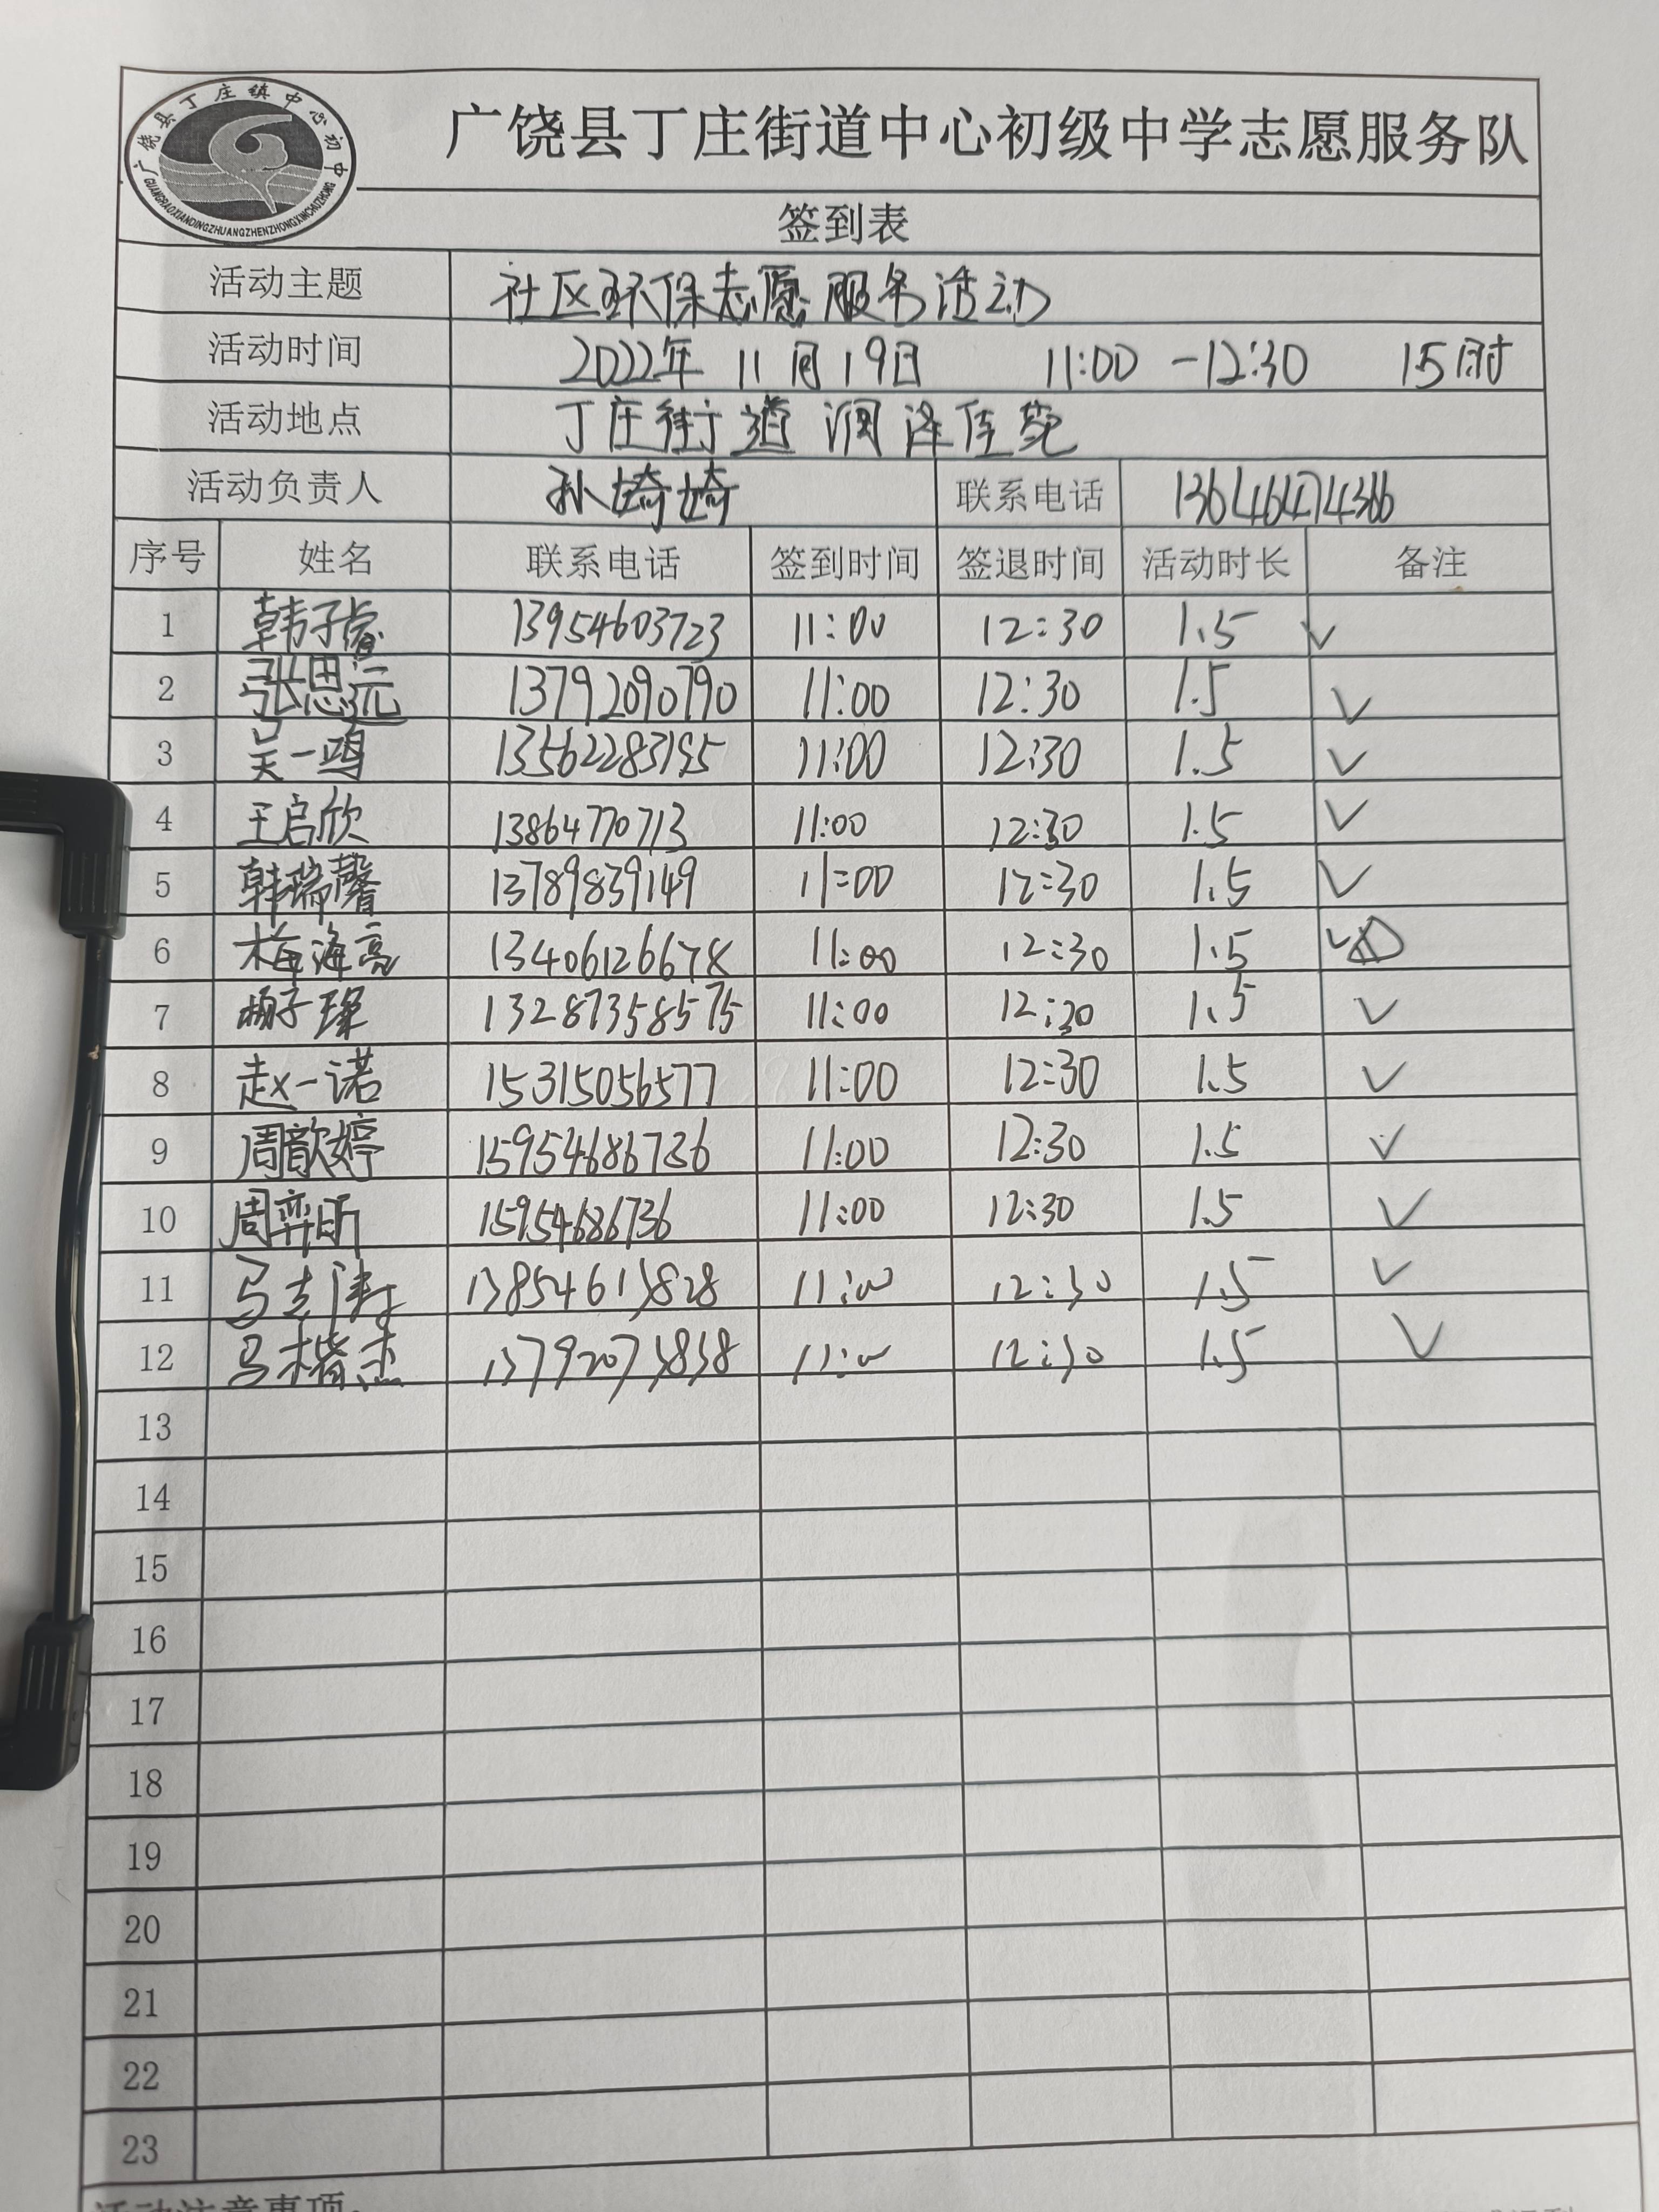 广饶县丁庄镇中心初中
GUANGRAOXIANDINGZHUANGZHENZHONGXINCHUZHONG
广饶县丁庄街道中心初级中学志愿服务队
签到表
活动主题 社区环保志愿服务活动
活动时间 2022年 11月19日 11:00 -12:30 1.5时
活动地点 丁庄街道润泽佳苑
活动负责人 孙婍婍 联系电话 13646474366
序号 姓名 联系电话 签到时间 签退时间 活动时长 备注
1 韩子睿 13954603723 11:00 12:30 1.5 √
2 张思远 13792090790 11:00 12:30 1.5 √
3 吴一鸣 13562283195 11:00 12:30 1.5 √
4 王启欣 13864770713 11:00 12:30 1.5 √
5 韩瑞馨 13789839149 11:00 12:30 1.5 √
6 梅海亮 13406126678 11:00 12:30 1.5 √
7 13287358575 11:00 12:30 1.5 √
8 赵一诺 15315056577 11:00 12:30 1.5 √
9 周歆婷 15954686736 11:00 12:30 1.5 √
10 周弈昕 15954686736 11:00 12:30 1.5 √
11 马志涛 13854613828 11:00 12:30 1.5 √
12 马楷杰 13792073838 11:00 12:30 1.5 √
13
14
15
16
17
18
19
20
21
22
23
活动注意事项: